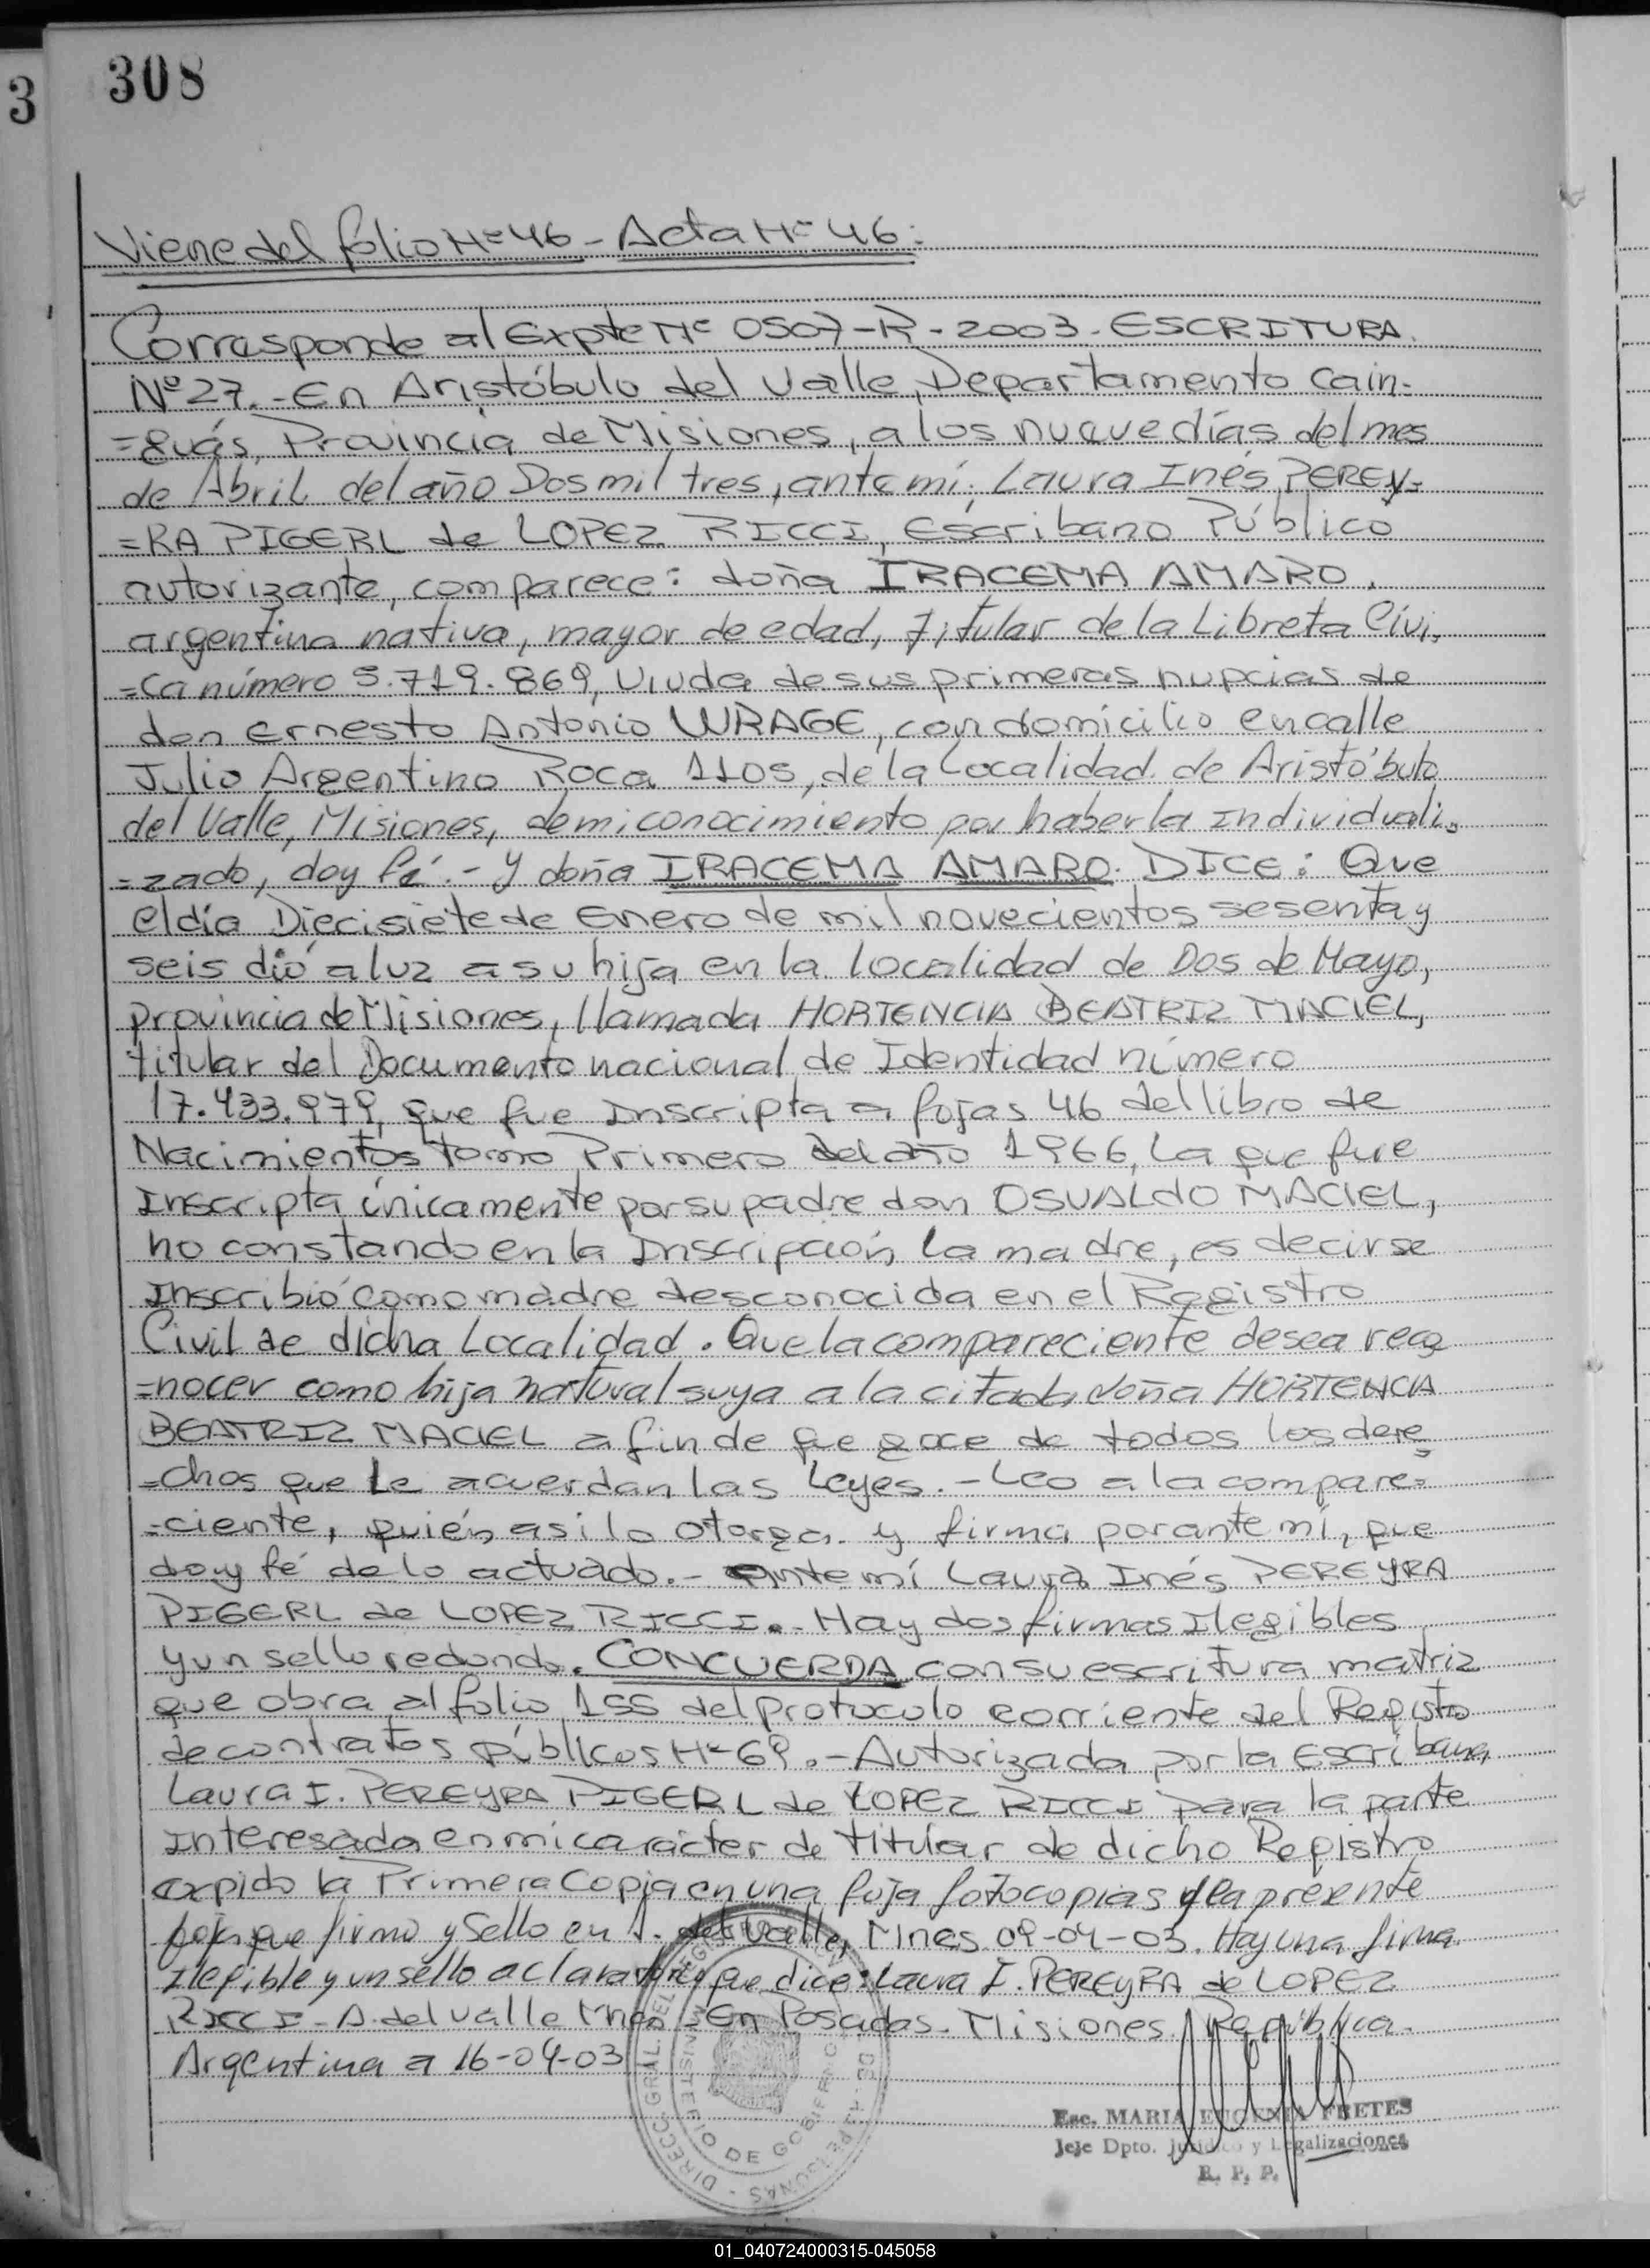 3
308
Viene del folio Nº 46 - Acta Nº 46:
Corresponde al Expte Nº 0507-R-2003. ESCRITURA.
Nº 27.- En Aristóbulo del Valle, Departamento Cain-
=guás, Provincia de Misiones, a los nueve días del mes
de Abril del año Dos mil tres, ante mí: Laura Inés PEREY-
=RA PIGERL de LOPEZ RICCI, Escribano Público
autorizante, comparece: doña IRACEMA AMARO,
argentina nativa, mayor de edad, titular de la Libreta Cívi-
=ca número 5.719.869, Viuda de sus primeras nupcias de
don Ernesto Antonio WRAGE, con domicilio en calle
Julio Argentino Roca 1105, de la Localidad de Aristóbulo
del Valle, Misiones, de mi conocimiento por haberla Individuali-
=zado, doy fé.- Y doña IRACEMA AMARO. DICE: Que
el día Diecisiete de Enero de mil novecientos sesenta y
seis dió a luz a su hija en la localidad de Dos de Mayo,
provincia de Misiones, llamada HORTENCIA BEATRIZ MACIEL,
titular del Documento nacional de Identidad número
17.433.979, que fue Inscripta a fojas 46 del libro de
Nacimientos Tomo Primero del año 1966, La que fue
Inscripta únicamente por su padre don OSVALDO MACIEL,
no constando en la Inscripción la madre, es decir se
Inscribió como madre desconocida en el Registro
Civil de dicha Localidad. Que la compareciente desea reco
=nocer como hija natural suya a la citada doña HORTENCIA
BEATRIZ MACIEL a fin de que goce de todos los dere
=chos que le acuerdan las Leyes.- Leo a la compare=
=ciente, quién asi lo otorga y firma por ante mi, que
doy fé de lo actuado.- Ante mí Laura Inés PEREYRA
PIGERL de LOPEZ RICCI.- Hay dos firmas Ilegibles
y un sello redondo. CONCUERDA con su escritura matriz
que obra al folio 155 del protocolo corriente del Registro
de contratos públicos Nº 69.- Autorizada por la Escribana
Laura I. PEREYRA PIGERL de LOPEZ RICCI para la parte
Interesada en mi carácter de titular de dicho Registro
expido la Primera Copia en una foja fotocopias y la presente
foja que firmo y Sello en A. del Valle, Mnes. 09-04-03. Hay una firma
Ilegible y un sello aclaratorio que dice: Laura I. PEREYRA de LOPEZ
RICCI - A. del Valle Mnes - En Posadas. Misiones. República.
Argentina a 16-04-03
MINISTERIO DE GOBIERNO
Esc. MARIA EUGENIA FRETES
Jefe Dpto. Jurídico y Legalizaciones
R. P. P.
01_040724000315-045058